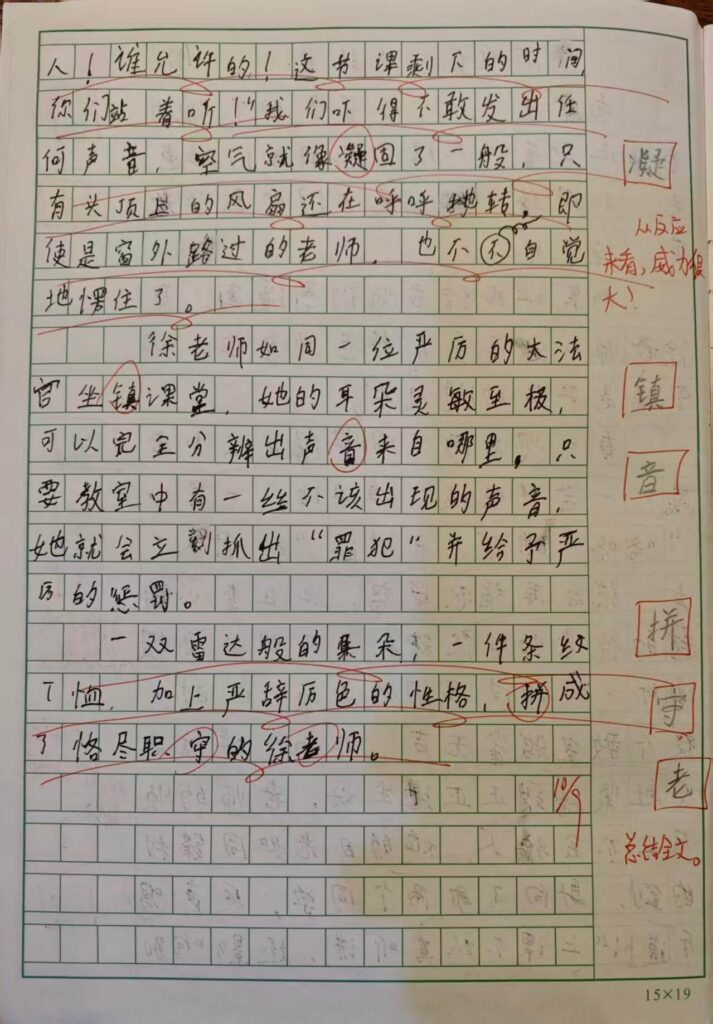 人！谁允许的！这节课剩下的时间，
你们站着听！”我们吓得不敢发出任
何声音，空气就像凝固了一般，只
有头顶上的风扇还在呼呼地转，即
使是窗外路过的老师，也不不自觉
地愣住了。
徐老师如同一位严厉的大法
官坐镇课堂，她的耳朵灵敏至极，
可以完全分辨出声音来自哪里，只
要教室中有一丝不该出现的声音，
她就会立刻抓出“罪犯”并给予严
厉的惩罚。
一双雷达般的耳朵，一件条纹
T恤，加上严辞厉色的性格，拼成
了恪尽职守的徐老师。
凝
从反应
来看，威力很
大！
镇
音
拼
守
老
10/9
总结全文。
15×19